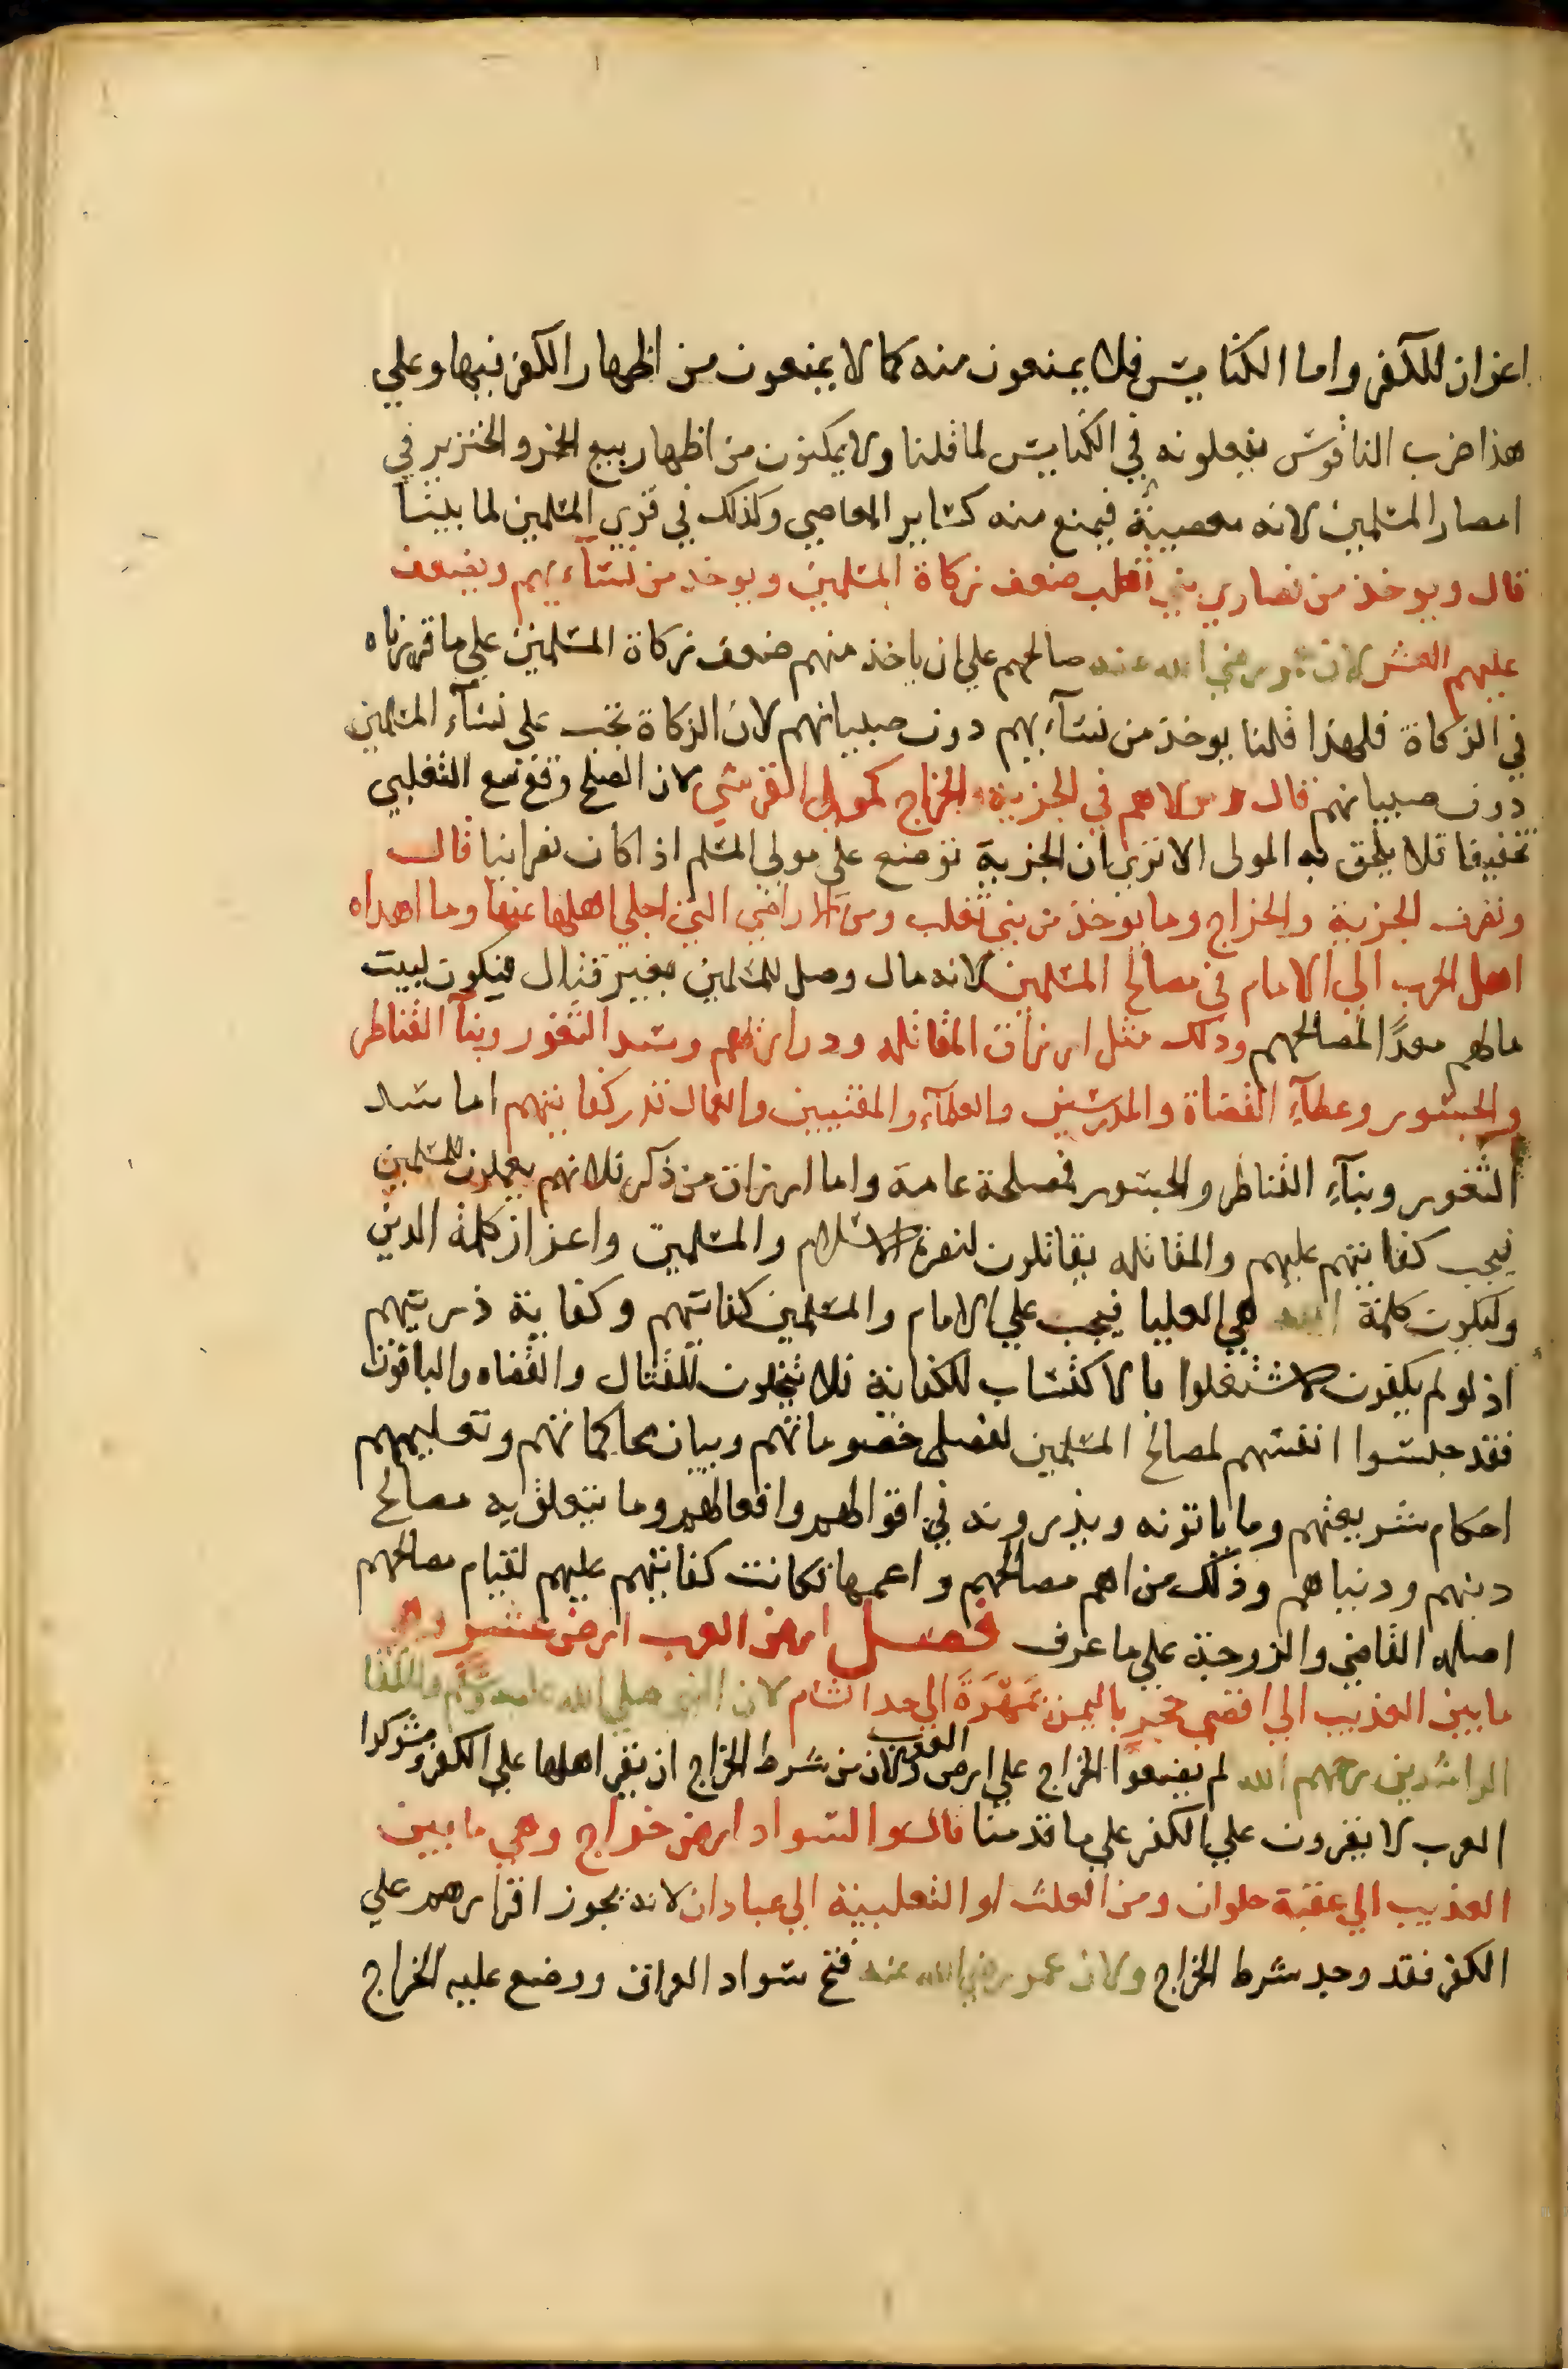 اعزاز للكفر واما الكنايس فلا يمنعون منه كما لا يمنعون من اظهار الكفر فيها وعلي
هذا ضرب الناقوس يفعلونه في الكنايس لما قلنا ولا يمكنون من اظهار بيع الخمر والخنزير في
امصار المسلمين لانه معصية فيمنع منه كساير المعاصي وكذلك في قري المسلمين لما بينا
قال ويوخذ من نصاري بني تغلب ضعف زكاة المسلمين ويوخذ من نسآءيهم ويضعف
عليهم العشر لان عمر رضي الله عنه صالحهم علي ان ياخذ منهم ضعف زكاة المسلمين علي ما قررناه
في الزكاة فلهذا قلنا يوخذ من نسآيهم دون صبيانهم لان الزكاة تجب على نسآء المسلمين
دون صبيانهم قال ومولاهم في الجزية والخراج كمولي القرشي لان الصلح وقع مع التغلبي
تخفيفا فلا يلحق به المولى الا تري ان الجزية توضع على مولي المسلم اذا كان نصرانيا قال
وتصرف الجزية والخراج وما يوخذ من بني تغلب ومن الاراضي التي اجلي اهلها عنها وما اهداه
اهل الحرب الي الامام في مصالح المسلمين لانه مال وصل للمسلمين بغير قتال فيكون لبيت
مالهم معدًا لمصالحهم وذلك مثل ارزاق المقاتله وذراريهم وسد الثغور وبنآ القناطر
والجسور وعطآءِ القضاة والمدرسين والعلمآء والمفتيين والعمال قدر كفايتهم اما سد
الثغور وبنآءِ القناطر والجسور فمصلحة عامة واما ارزاق من ذكر فلانهم يعملون للمسلمين
فيجب كفايتهم عليهم والمقاتله يقاتلون لنصرة الاسلام والمسلمين واعزاز كلمة الدين
ولتكون كلمة الله هي العليا فيجب علي الامام والمسلمين كفايتهم وكفاية ذريتهم
اذ لو لم يكفون لاشتغلوا بالاكتساب للكفاية فلا يتخلون للقتال والقضاه والباقون
فقد حبسوا انفسهم لمصالح المسلمين لفصل خصوماتهم وبيان محاكماتهم وتعليمهم
احكام شريعتهم وما ياتونه ويذرونه في اقوالهم وافعالهم وما يتعلق به مصالح
دينهم ودنياهم وذلك من اهم مصالحهم واعمها فكانت كفايتهم عليهم لقيام مصالحهم
اصله القاضي والزوجة علي ما عرف فصل ارض العرب ارض عشر وهي
ما بين العذيب الي اقصي حجر باليمن بمَهْرَةَ الي حد الشام لان النبي صلي الله عليه وسلم والخلفا
الراشدين رحمهم الله لم يضعوا الخراج علي ارض العرب ولان من شرط الخراج ان يقر اهلها علي الكفر ومشركوا
العرب لا يقرون علي الكفر على ما قدمنا قال والسواد ارض خراج وهي ما بين
العذيب الي عقبة حلوان ومن العلث او الثعلبية الي عبادان لانه يجوز اقرارهم علي
الكفر فقد وجد شرط الخراج ولان عمر رضي الله عنه فتح سواد العراق ووضع عليه الخراج